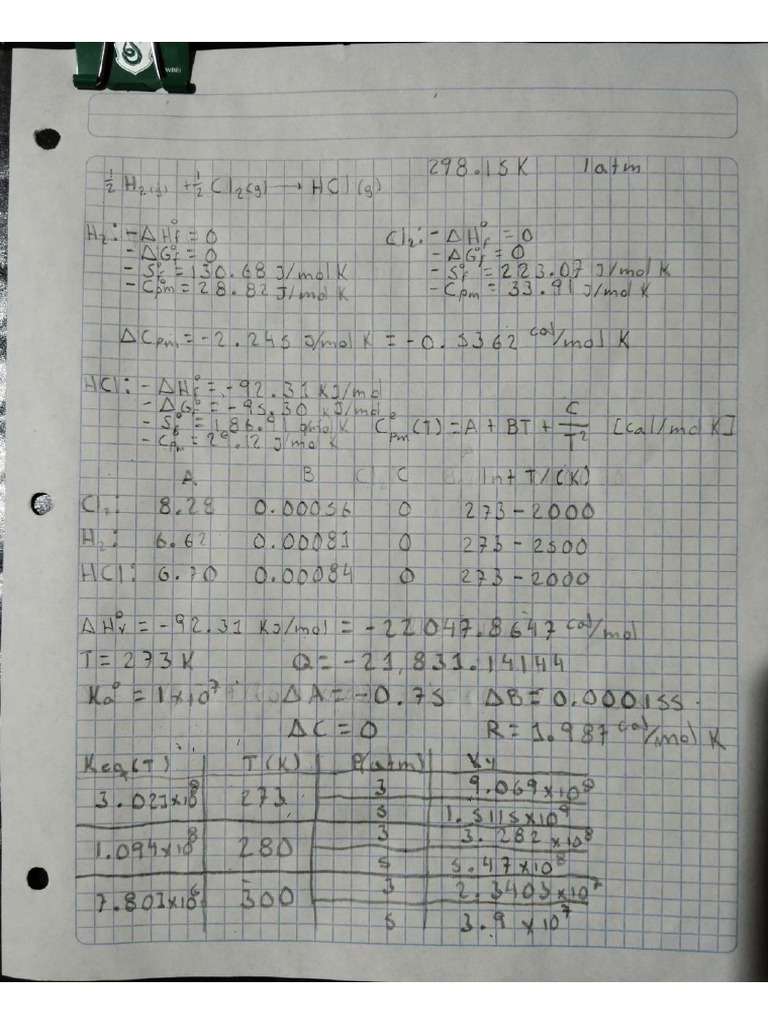 WBEI
298.15K 1atm
½ H₂(g) + ½ Cl₂(g) → HCl(g)
H₂: - ΔHf° = 0 Cl₂: - ΔHf° = 0
- ΔGf° = 0 - ΔGf° = 0
- Sf° = 130.68 J/mol K - Sf° = 223.07 J/mol K
- Cpm = 28.82 J/mol K - Cpm = 33.91 J/mol K
ΔCpm = -2.245 J/mol K = -0.5362 cal/mol K
HCl: - ΔHf° = -92.31 KJ/mol
- ΔGf° = -95.30 KJ/mol
- Sf° = 186.91 J/mol K C°pm(T) = A + BT + C/T² [cal/mol K]
- Cpm = 29.12 J/mol K
A B C Int T/(K)
Cl₂: 8.28 0.00056 0 273-2000
H₂: 6.62 0.00081 0 273-2500
HCl: 6.70 0.00084 0 273-2000
ΔHr° = -92.31 KJ/mol = -22047.8647 cal/mol
T = 273 K Q = -21,831.14144
Ka° = 1x10⁷ ΔA = -0.75 ΔB = 0.000155
ΔC = 0 R = 1.987 cal/mol K
Keq(T) T(K) P(atm) Kγ
3.023x10⁸ 273 3 9.069x10⁸
5 1.5115x10⁹
1.094x10⁸ 280 3 3.282x10⁸
5 5.47x10⁸
7.801x10⁶ 300 3 2.3403x10⁷
5 3.9x10⁷